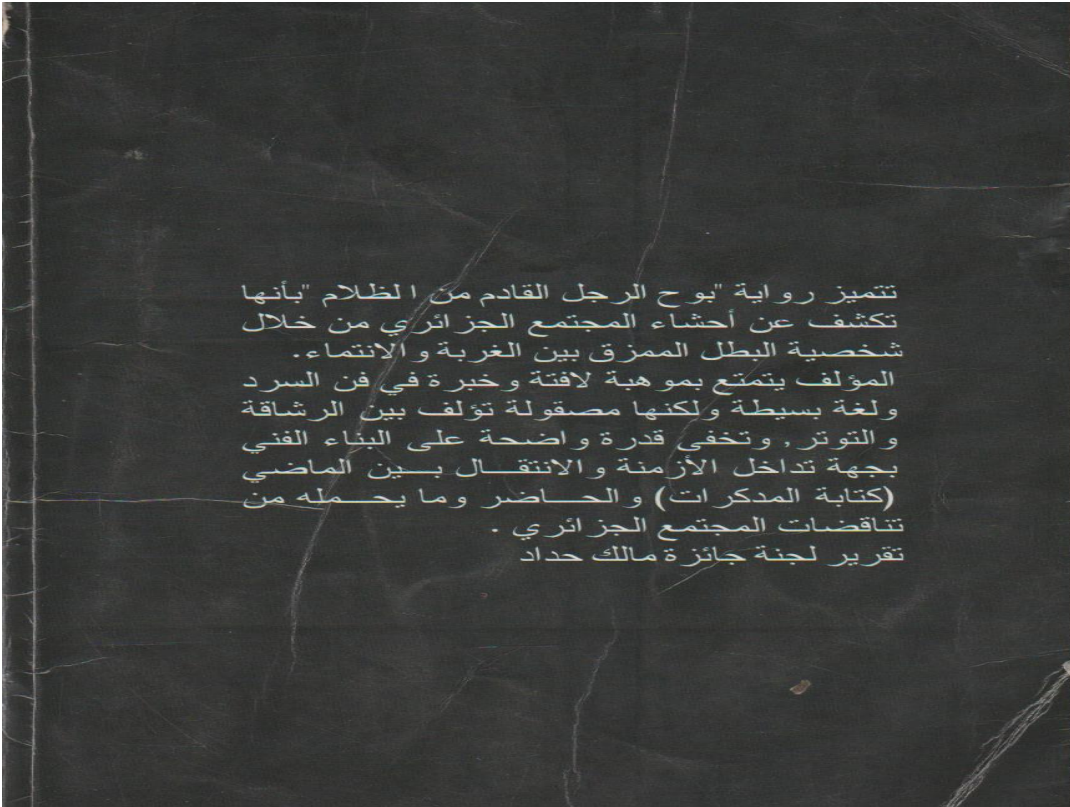 تتميز رواية "بوح الرجل القادم من الظلام "بأنها
تكشف عن أحشاء المجتمع الجزائري من خلال
شخصية البطل الممزق بين الغربة والانتماء.
المؤلف يتمتع بموهبة لافتة وخبرة في فن السرد
ولغة بسيطة ولكنها مصقولة تؤلف بين الرشاقة
والتوتر, وتخفى قدرة واضحة على البناء الفني
بجهة تداخل الأزمنة والانتقــال بــين الماضي
(كتابة المدكرات) والحــاضر وما يحــمله من
تناقضات المجتمع الجزائري .
تقرير لجنة جائزة مالك حداد